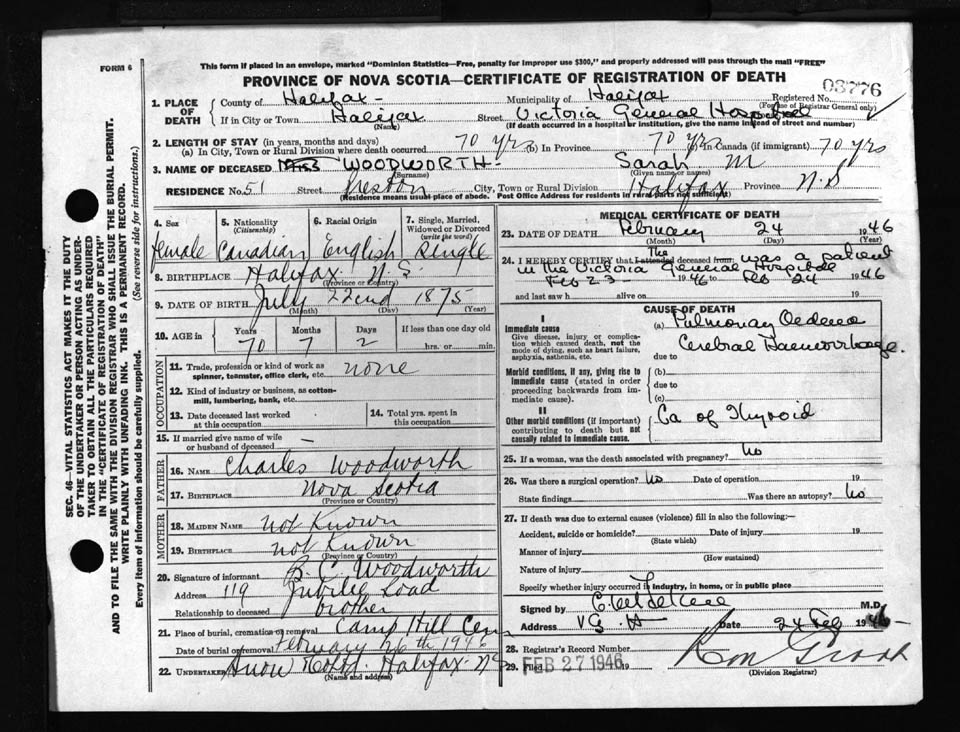 FORM 6
This form if placed in an envelope, marked "Dominion Statistics—Free, penalty for improper use $300," and properly addressed will pass through the mail "FREE"
PROVINCE OF NOVA SCOTIA—CERTIFICATE OF REGISTRATION OF DEATH
03776
1. PLACE OF DEATH
County of Halifax Municipality of Halifax Registered No.
(For use of Registrar General only)
If in City or Town Halifax Street Victoria General Hospital
(Name) (If death occurred in a hospital or institution, give the name instead of street and number)
2. LENGTH OF STAY (in years, months and days)
(a) In City, Town or Rural Division where death occurred 70 yrs (b) In Province 70 yrs (c) In Canada (if immigrant) 70 yrs
3. NAME OF DECEASED Miss WOODWORTH Sarah M
(Surname) (Given name or names)
RESIDENCE No. 51 Street Preston City, Town or Rural Division Halifax Province N.S
(Residence means usual place of abode. Post Office Address for residents in rural parts not sufficient)
4. Sex
female
5. Nationality (Citizenship)
Canadian
6. Racial Origin
English
7. Single, Married, Widowed or Divorced (write the word)
Single
8. BIRTHPLACE Halifax N.S.
(Province or Country)
9. DATE OF BIRTH July 22nd 1875
(Month) (Day) (Year)
10. AGE Years Months Days If less than one day old
70 7 2 hrs. or min.
OCCUPATION
11. Trade, profession or kind of work as spinner, teamster, office clerk, etc. none
12. Kind of industry or business, as cotton-mill, lumbering, bank, etc.
13. Date deceased last worked at this occupation
14. Total yrs. spent in this occupation
15. If married give name of wife or husband of deceased —
FATHER
16. NAME Charles Woodworth
17. BIRTHPLACE Nova Scotia
(Province or Country)
MOTHER
18. MAIDEN NAME not Known
19. BIRTHPLACE not Known
(Province or Country)
20. Signature of informant B. C. Woodworth
Address 119 Jubilee Road
Relationship to deceased brother
21. Place of burial, cremation or removal Camp Hill Cem
Date of burial or removal February 26th 1946
22. Undertaker Snow Halifax NS
(Name and address)
MEDICAL CERTIFICATE OF DEATH
23. DATE OF DEATH February 24 1946
(Month) (Day) (Year)
24. I HEREBY CERTIFY that I attended The deceased was a patient
in the Victoria General Hospital
Feb 23 - 1946 to Feb 24 1946
and last saw h alive on 19
CAUSE OF DEATH
I
Immediate cause
Give disease, injury or complication which caused death, not the mode of dying, such as heart failure, asphyxia, asthenia, etc.
(a) Pulmonary Oedema
Cerebral Haemorrhage.
due to
Morbid conditions, if any, giving rise to immediate cause (stated in order proceeding backwards from immediate cause).
(b)
due to
(c)
II
Other morbid conditions (if important) contributing to death but not causally related to immediate cause.
Ca of Thyroid
25. If a woman, was the death associated with pregnancy? No
26. Was there a surgical operation? No Date of operation 19
State findings Was there an autopsy? No
27. If death was due to external causes (violence) fill in also the following:-
Accident, suicide or homicide? Date of injury 19
(State which)
Manner of injury
(How sustained)
Nature of injury
Specify whether injury occurred in industry, in home, or in public place
Signed by M.D.
Address V G H Date 24 Feb 1946
28. Registrar's Record Number
29. Filed FEB 27 1946 19
(Division Registrar)
SEC. 46—VITAL STATISTICS ACT MAKES IT THE DUTY
OF THE UNDERTAKER OR PERSON ACTING AS UNDERTAKER TO OBTAIN ALL THE PARTICULARS REQUIRED
IN THE "CERTIFICATE OF REGISTRATION OF DEATH"
AND TO FILE THE SAME WITH THE DIVISION REGISTRAR WHO SHALL ISSUE THE BURIAL PERMIT.
WRITE PLAINLY WITH UNFADING INK. THIS IS A PERMANENT RECORD.
Every item of information should be carefully supplied. (See reverse side for instructions.)